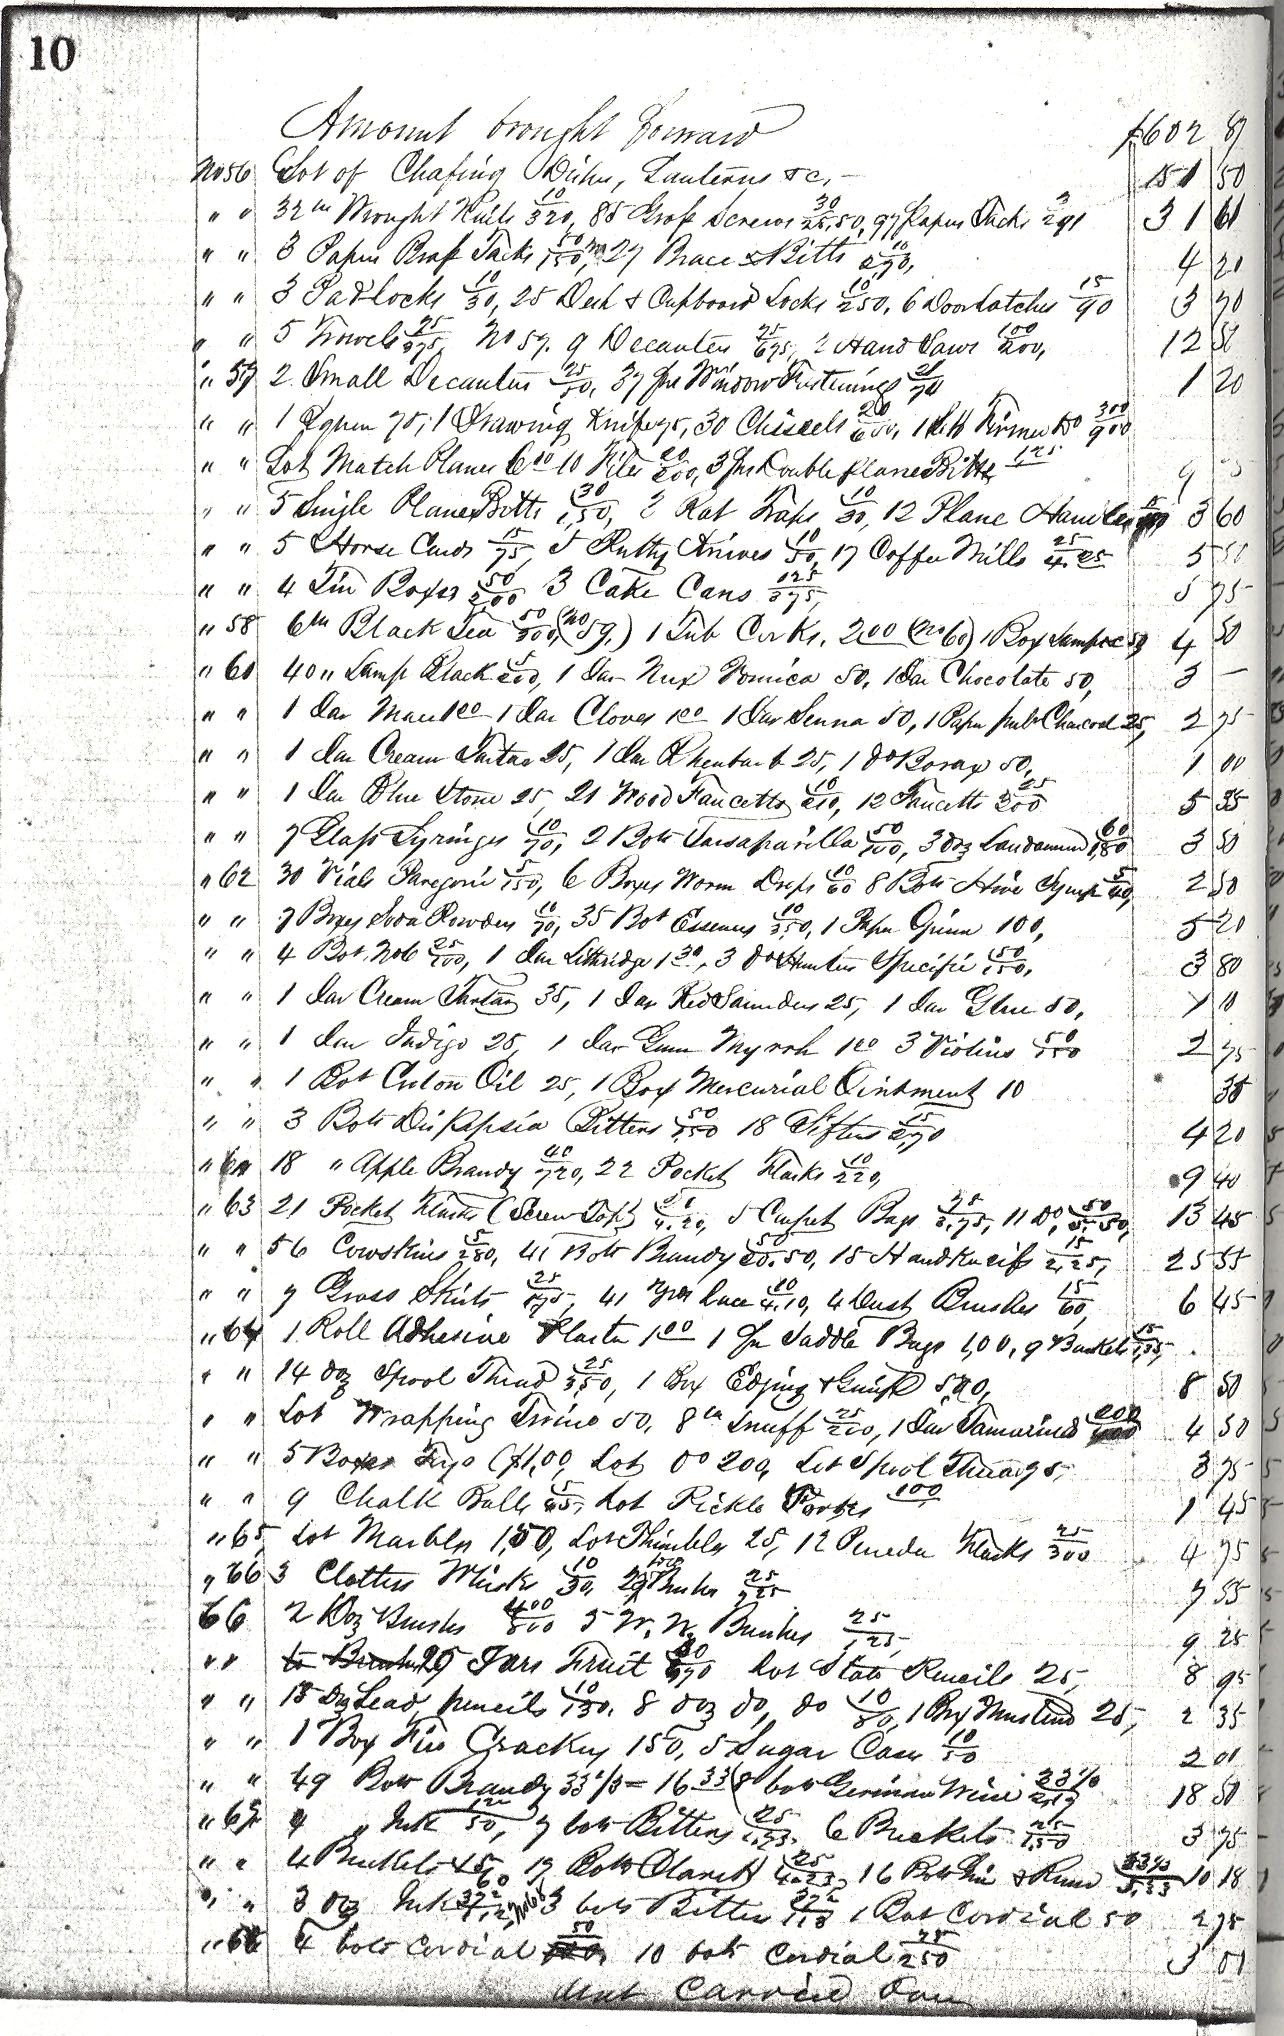 10
Amount brought forward $602 87
No 56 Lot of Chafing Dishes, Lanterns &c, 151 50
" " 32 lb Wrought Nails 10/320, 85 Gross Screws 30/25.50, 97 Papers Tacks 3/291 31 61
" " 3 Papers Brass Tacks 50/150, 27 Brace & Bitts 10/270, 4 20
" " 3 Padlocks 10/30, 25 Desk & Cupboard Locks 10/250, 6 Door Latches 15/90 3 70
" " 5 Trowels 25, No 59. 9 Decanters 75/675, 2 Hand Saws 100/200, 12
" 59 2 Small Decanters 25/50, 37 Window Fastenings 1 20
" " 1 75, 1 Drawing Knife 75, 30 Chissels 20/600, 300/900
" " Lot Match Planes 6 00 10 Files 20/200, 3 Double plane Bitts 1.25
" " 5 Single Plane Bitts 30/1,50, 2 Rat Traps 10/30, 12 Plane Handles 3 60
" " 5 Horse Cards 15/75, 5 Putty Knives 10/50, 17 Coffee Mills 25/4.25 5
" " 4 Tin Boxes 50/200 3 Cake Cans 125/375, 5 75
" 58 6 lb Black Tea 50/300, (No 59.) 1 Tub Corks, 2 00 (No 60) 1 Box 50 4 50
" 60 40 " Lamp Black 5/200, 1 Jar Nux Vomica 50, 1 Jar Chocolate 50, 3 —
" " 1 Jar Mace 1 00 1 Jar Cloves 1 00 1 Jar Senna 50, 1 Paper Charcoal 25, 2 75
" " 1 Jar Cream Tartar 25, 1 Jar Rheubarb 25, 1 do Borax 50, 1 00
" " 1 Jar Blue Stone 25, 21 Wood Faucetts 10/210, 12 Faucetts 25/300 5 35
" " 7 Glass Syringes 10/70, 2 Bots Sarsaparilla 50/100, 3 doz Laudanum 60/1,80 3 50
" 62 30 Vials Paregoric 5/150, 6 Boxes Worm Drops 10/60 8 Bots Hive Syrup 5/40, 2 50
" " 7 Boxes Soda Powders 10/70, 35 Bot Essences 10/3,50, 1 Paper Green 100, 5 20
" " 4 Bot. No 6 25/100, 1 Jar Lithridge 1 30, 3 do Hunters Specific 50/150, 3 80
" " 1 Jar Cream Tartar 35, 1 Jar Red Saunders 25, 1 Jar Glue 50, 1 10
" " 1 Jar Indigo 25, 1 Jar Gum Myrrh 1 00 3 Violins 50/150 2 75
" " 1 Bot Croton Oil 25, 1 Box Mercurial Ointment 10 35
" " 3 Bots Dispepsia Bitters 50/150 18 Sifters 15/270 4 20
" 18 " Apple Brandy 40/720, 22 Pocket Flasks 10/220, 9 40
" 63 21 Pocket Flasks (Screw Top) 20/4.20, 5 Carpet Bags 75/3,75, 11 do 50/5.50, 13 45
" " 56 Cowskins 5/280, 41 Bots Brandy 50/20.50, 15 Handkerchfs 15/2,25, 25 55
" " 7 Grass Skirts 25/175, 41 yds Lace 10/4.10, 4 Dust Brushes 15/60, 6 45
" 64 1 Roll Adhesive Plaster 1 00 1 pr Saddle Bags 1,00, 9 Baskets 15/1,35,
" " 14 doz Spool Thread 25/3,50, 1 Box Edging & Gimp 5,00, 8 50
" " Lot Wrapping Twine 50, 8 lb Snuff 25/200, 1 Jar Tamarinds 200 4 50
" " 5 Boxes Toys ($1,00, Lot Do 200, Lot Spool Thread 75, 3 75
" " 9 Chalk Balls 5/45, Lot Pickle Forks 100 1 45
" 65, Lot Marbles 1,50, Lot Thimbles 25, 12 Flasks 25/300 4 75
" 66 3 Clothes Whisks 10/30, 29 Brushes 25/725 7 55
66 2 Doz Brushes 400/800 5 W. W. Brushes 25/1,25, 9 25
" " 29 Jars Fruit 30/870 Lot Slate Pencils 25, 8 95
" " 13 doz Lead pencils 10/130. 8 doz do, do 10/80, 1 Box Mustard 25, 2 35
" " 1 Box Fire Crackers 150, 5 Sugar Cans 10/50 2 00
" " 49 Bots Brandy 33 1/3 = 16 33 (8 bots German Wine 18 50
" 4 " Ink 50, 7 bots Bittters 25, 6 Buckets 25/1,50 3 75
" " 4 Buckets 45, 17 Bots Claret 25/4.25, 16 Bots Gin & Rum 33 1/3/5,33 10 18
" " 3 doz Ink, No 68 3 bots Bitters, 1 Bot Cordial 50 2 75
" 68 4 bots Cordial 50, 10 bots Cordial 25/250 3 00
Amt Carried Over